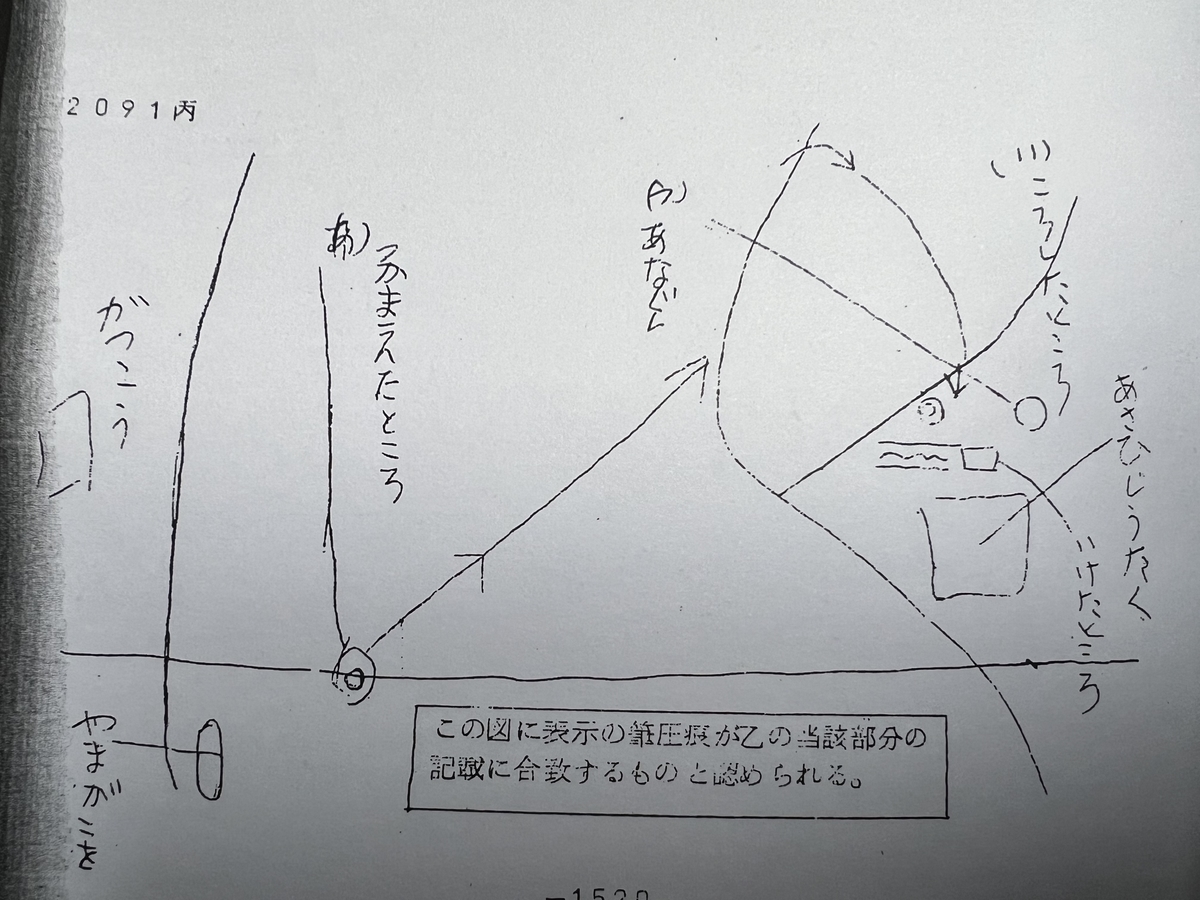 2091丙
(い)ころしたところ
あさひじうたく
いけたところ
(う)あなぐら
(あ)つかまえたところ
がつこう
やまがこを
この図に表示の筆圧痕が乙の当該部分の
記載に合致するものと認められる。
—1520